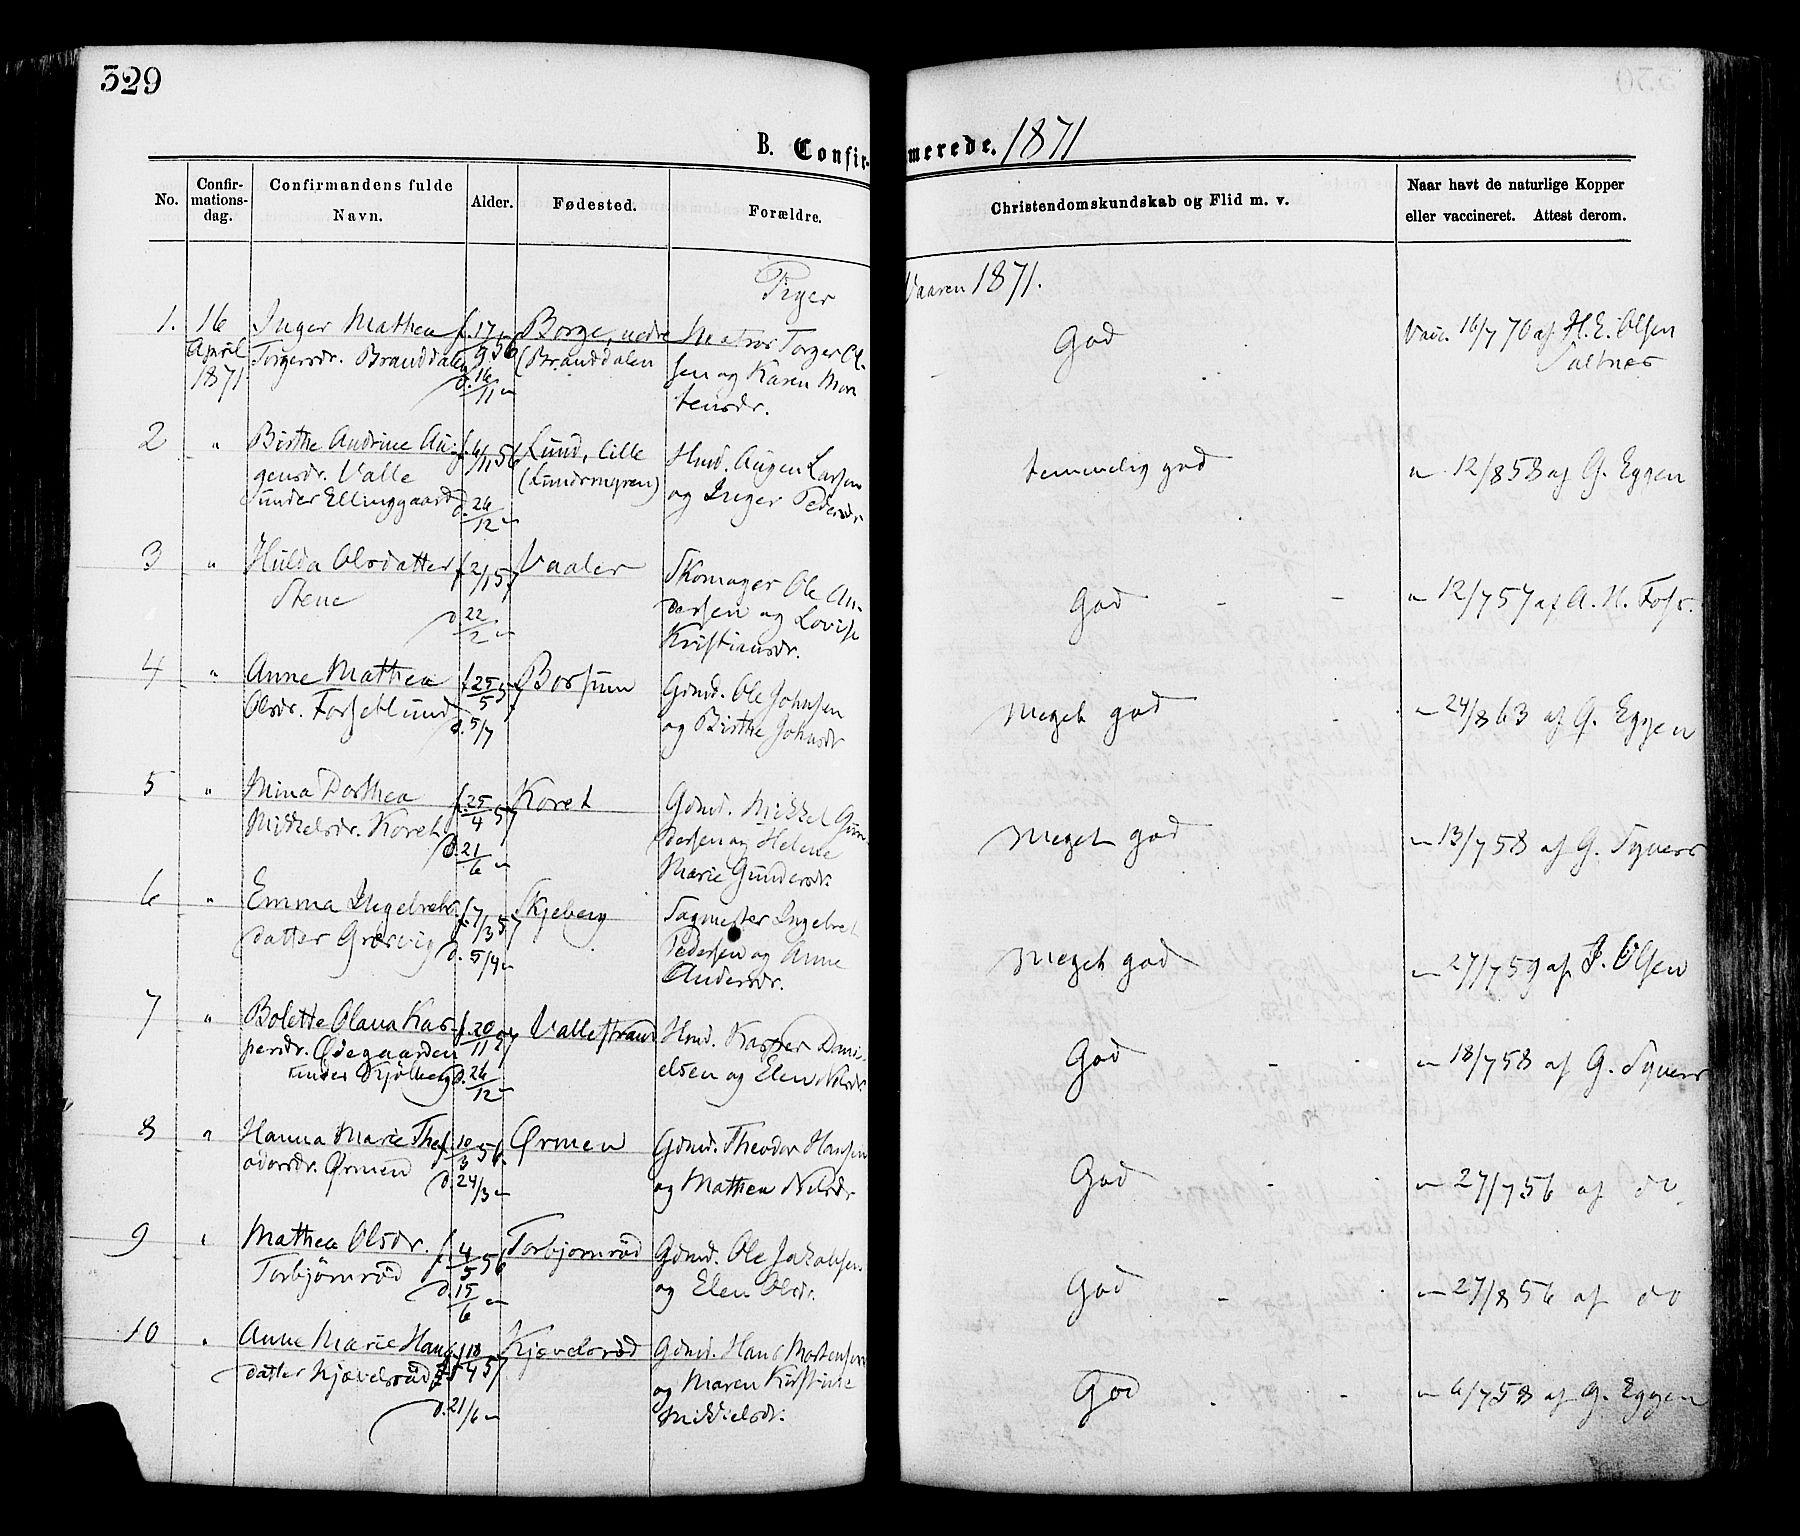 329
B. Confirmerede. 1871
No.
Confirmationsdag.
Confirmandens fulde Navn.
Alder.
Fødested.
Forældre.
Christendomskundskab og Flid m. v.
Naar havt de naturlige Kopper
eller vaccineret. Attest derom.
Piger Vaaren 1871.
1. 16 April 1871
Inger Mathea
Torgersdr. Branddalen
f. 17/9 56
d. 16/11 "
Borge, nedre
(Branddalen
Matros Torger Ol-
sen og Karen Mor
tensdr.
God
Vacc. 16/7 70 af H. E. Olsen
Saltnes
2 "
Birthe Andrine Au-
gensdr. Valle
under Ellinggaard
d. 26/12 "
Lund, lille
(Lundemyren)
Hmd. Augen Larsen
og Inger Pedersdr
temmelig god
" 12/8 58 af G. Eggen
3 "
Hulda Olsdatter
Stene
f. 2/1 57
d. 22/2 "
Vaaler
Skomager Ole An-
dersen og Lovise
Kristiansdr.
God
" 12/7 57 af A. N. Foss.
4 "
Anne Mathea
Olsdr. Forsetlund
f. 25/5 57
d. 5/7
Borsum
Gdmd. Ole Johnsen
og Birthe Johnsdr
Meget god
" 24/8 63 af G. Eggen
5 "
Mina Dorthea
Mikkelsdr. Koret
f. 25/4 57
d. 21/6 "
Koret
Gdmd. Mikkel Gun-
dersen og Helene
Marie Gundersdr.
Meget god
" 13/7 58 af G. Syvers
6 "
Emma Ingebrets
datter Græsvig
f. 7/3 57
d. 5/4 "
Skjeberg
Sagmester Ingebret
Pedersen og Anne
Andersdr.
Meget god
" 27/7 59 af J. Olsen
7 "
Bolette Olava Kas-
persdr. Ødegaarden
under Kjølberg
f. 20/11 57
d. 26/12 "
Vallestrand
Hmd. Kasper Dani-
elsen og Elen Nilsdr
God
" 18/7 58 af G. Syvers
8 "
Hanna Marie The-
odorsdr. Ørmen
f. 10/3 56.
d. 24/3 "
Ørmen
Gdmd. Theodor Hansen
og Mathea Nilsdr
God
" 27/7 56 af do
9 "
Mathea Olsdr.
Torbjørnrød
f. 4/5 56
d. 15/6 "
Torbjørnrød
Gdmd. Ole Jakobsen
og Elen Olsdr.
God
" 27/8 56 af do
10 "
Anne Marie Hans
datter Kjævelsrød
f. 18/4 57
d. 21/6 "
Kjævelsrød
Gdmd. Hans Mortensen
og Maren Kirstine
Mikkelsdr.
God
" 6/7 58 af G. Eggen